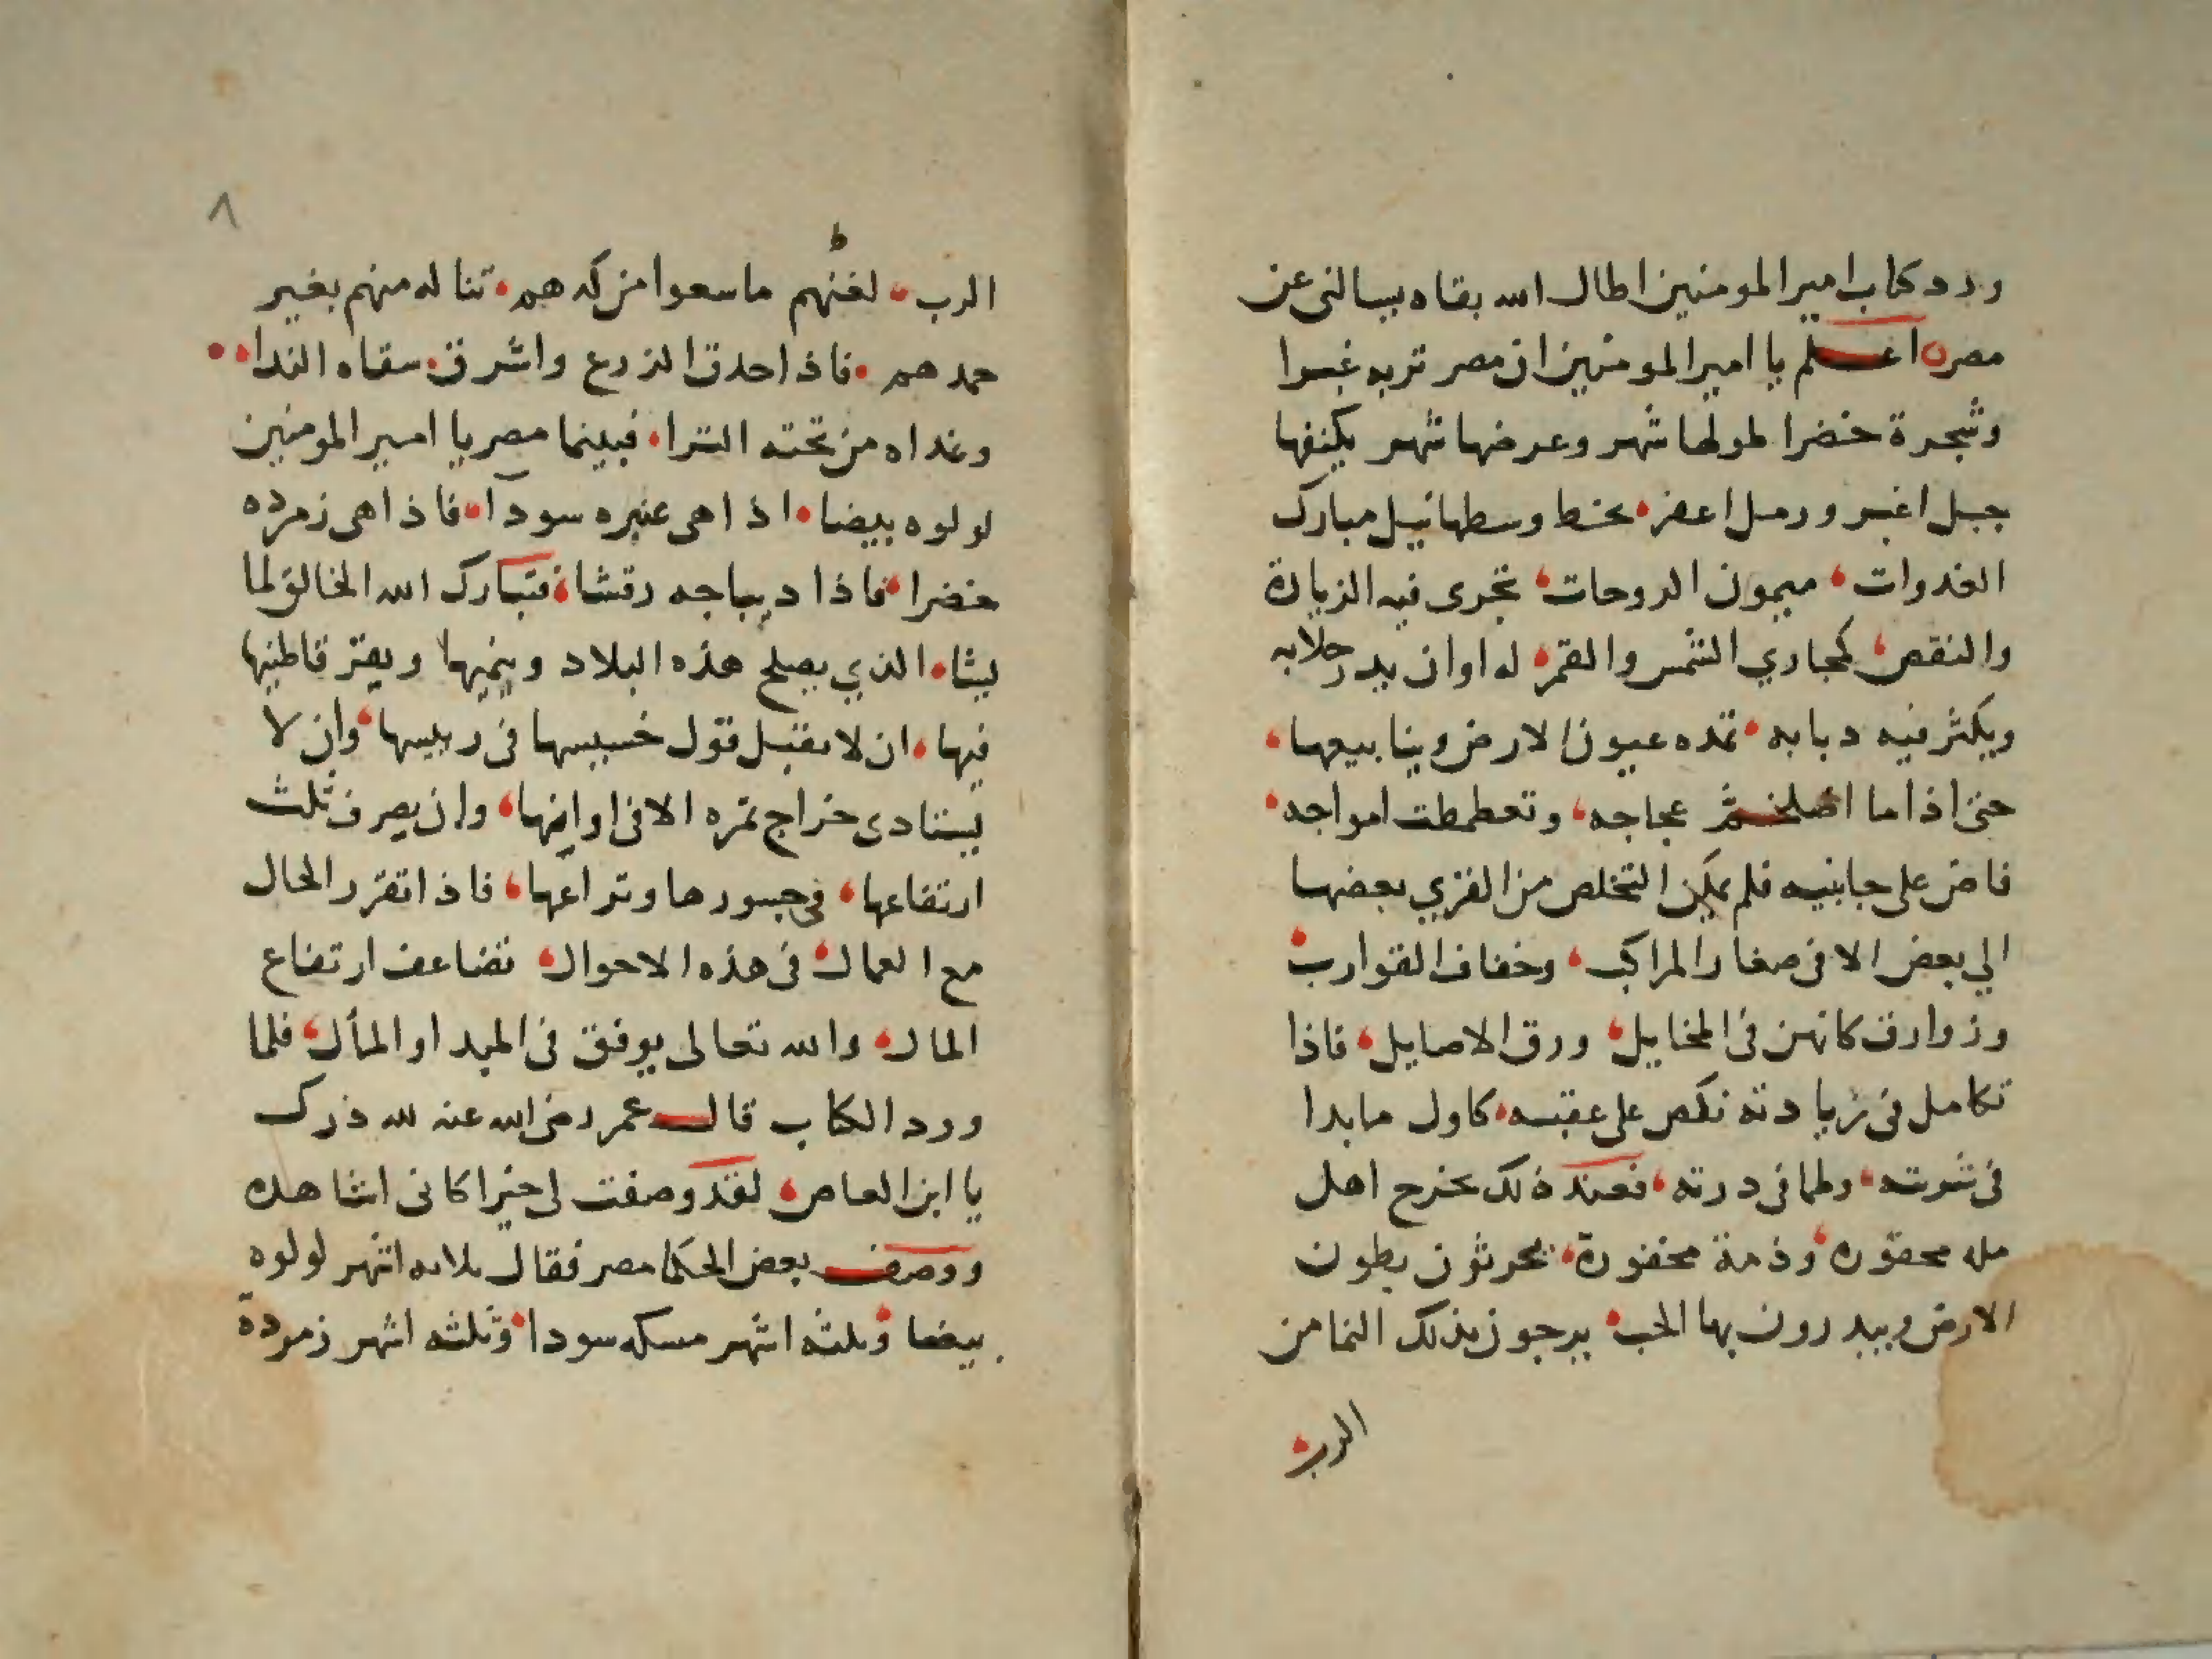 ورد كتاب امير المومنين اطال الله بقاه يسالنى عن
مصر اعلم يا امير المومنين ان مصر تربه غبرا
وشجرة خضرا طولها شهر وعرضها شهر يكنفها
جبل اغبر ورمل اعفر يخط وسطها نيل مبارك
الغدوات ميمون الروحات تجرى فيه الزيادة
والنقص كمجاري الشمس والقمر له اوان يدر حلابه
ويكثر فيه دبابه تمده عيون الارض وينابيعها
حتى اذا ما اصلخم عجاجه وتعطمطت امواجه
فاض على جانبيه فلم يمكن التخلص من القري بعضها
الي بعض الا فى صغار المراكب وخفاف القوارب
وزوارق كانهن فى المخايل ورق الاصايل فاذا
تكامل فى زيادته نكص على عقبه كاول ما بدا
فى وطما فى درته فعند ذلك يخرج اهل
مله محقوره وذمة مخفورة يحرثون بطون
الارض ويبدرون بها الحب يرجون بذلك النما من
الرب
٨
الرب لغيرهم ما سعوا من كدهم تناله منهم بغير
حمدهم فاذا احدق الزرع واشرق سقاه الندا
وغداه من تحته الثرا فبينما مصر يا امير المومنين
لولوه بيضا اذا هى عنبره سودا فاذا هى زمرده
خضرا فاذا ديباجه رقشا فتبارك الله الخالق لما
يشا الذي يصلح هذه البلاد وينميها ويقر قاطنيها
فيها ان لا يقبل قول خسيسها فى رييسها وان لا
يستادى خراج ثمره الا فى اوانها وان يصرف ثلث
ارتفاعها فى جسورها وتراعها فاذا تقرر الحال
مع العمال فى هذه الاحوال تضاعف ارتفاع
المال والله تعالى يوفق فى المبدا والمأل فلما
ورد الكتاب قال عمر رضى الله عنه لله درك
يا ابن العاص لقد وصفت لى خيرا كانى اشاهده
ووصف بعض الحكما مصر فقال ثلاثه اشهر لولوه
بيضا وثلثه اشهر مسكه سودا وثلثه اشهر زمردة